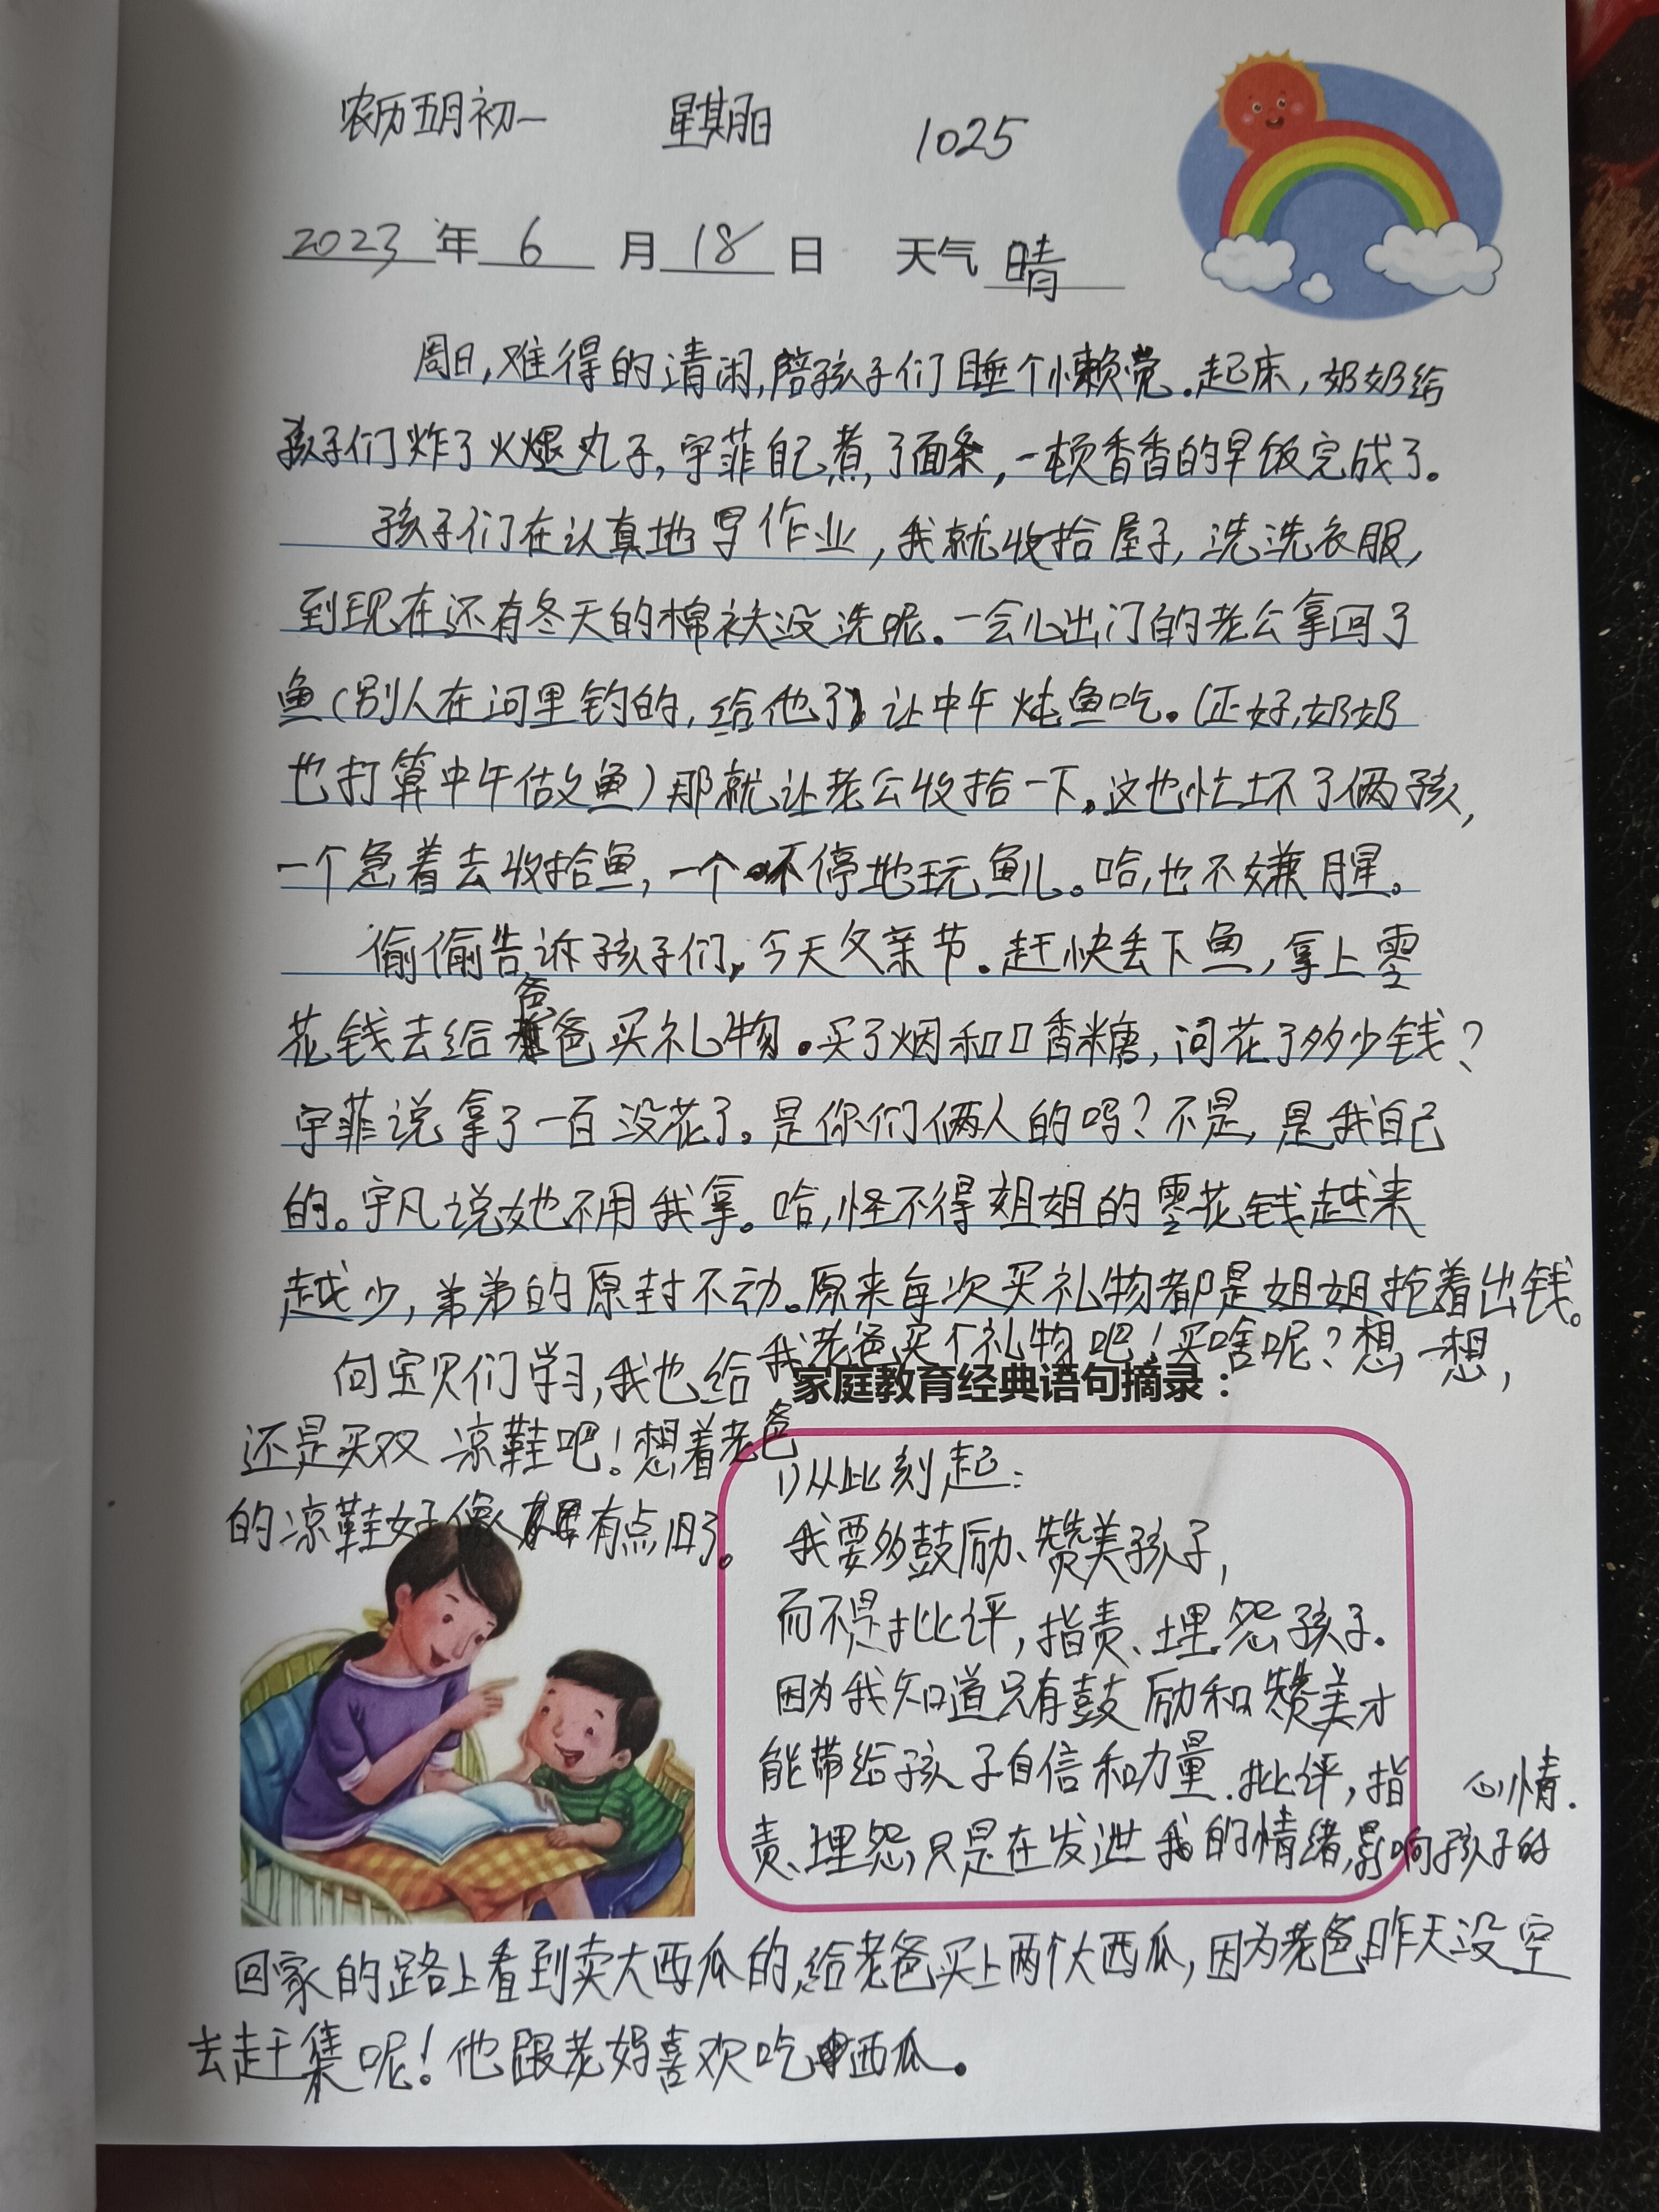 农历五月初一 星期日 1025
2023年6月18日 天气 晴
周日,难得的清闲,陪孩子们睡个懒觉.起床,奶奶给
孩子们炸了火腿丸子,宇菲自己煮了面条,一顿香香的早饭完成了。
孩子们在认真地写作业,我就收拾屋子,洗洗衣服,
到现在还有冬天的棉袄没洗呢.一会儿出门的老公拿回了
鱼(别人在河里钓的,给他了)让中午炖鱼吃。(正好,奶奶
也打算中午做鱼)那就让老公收拾一下。这也忙坏了俩孩,
一个急着去收拾鱼,一个不停地玩鱼儿。哈,也不嫌腥。
偷偷告诉孩子们,今天父亲节.赶快丢下鱼,拿上零
花钱去给爸爸买礼物.买了烟和口香糖,问花了多少钱?
宇菲说拿了一百没花了。是你们俩人的吗?不是,是我自己
的。宇凡说她不用我拿。哈,怪不得姐姐的零花钱越来
越少,弟弟的原封不动。原来每次买礼物都是姐姐抢着出钱。
向宝贝们学习,我也给我老爸买个礼物吧!买啥呢?想一想,
家庭教育经典语句摘录:
还是买双凉鞋吧!想着老爸
的凉鞋好像有点旧了。
1)从此刻起:
我要多鼓励、赞美孩子,
而不是批评,指责、埋怨孩子.
因为我知道只有鼓励和赞美才
能带给孩子自信和力量.批评,指
责、埋怨,只是在发泄我的情绪,影响孩子的
心情.
回家的路上看到卖大西瓜的,给老爸买上两个大西瓜,因为老爸昨天没空
去赶集呢!他跟老妈喜欢吃西瓜。